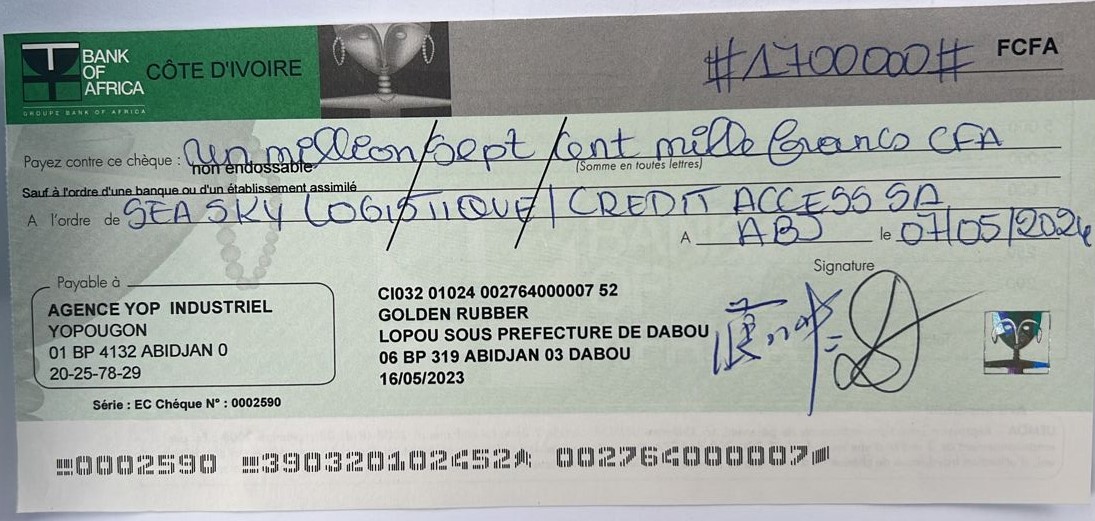 BANK
OF
AFRICA
CÔTE D'IVOIRE
GROUPE BANK OF AFRICA
#1700000# FCFA
Payez contre ce chèque : Un million sept cent mille francs CFA
non endossable (Somme en toutes lettres)
Sauf à l'ordre d'une banque ou d'un établissement assimilé
A l'ordre de SEA SKY LOGISTIQUE / CREDIT ACCESS SA
A ABJ le 07/05/2024
Signature
Payable à
AGENCE YOP INDUSTRIEL
YOPOUGON
01 BP 4132 ABIDJAN 0
20-25-78-29
CI032 01024 002764000007 52
GOLDEN RUBBER
LOPOU SOUS PREFECTURE DE DABOU
06 BP 319 ABIDJAN 03 DABOU
16/05/2023
Série : EC Chéque N° : 0002590
0002590 390320102452A 002764000007